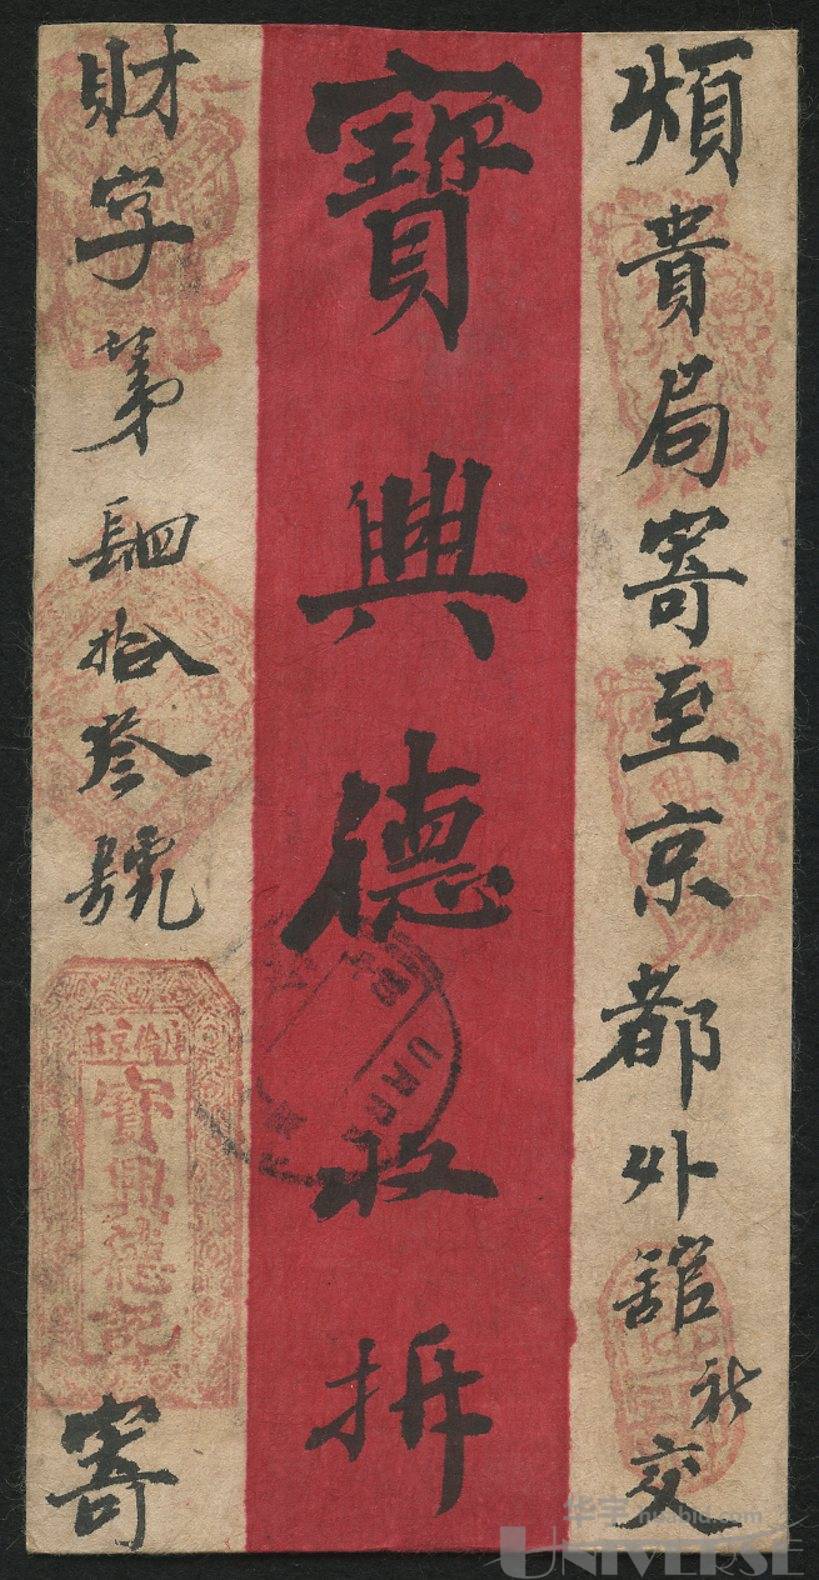 煩貴局寄至京都外舘北交
寶興德收拆
財字第肆拾叁號
寶興德記
寄
URGA
华宇 huabid.com
UNIVERSE